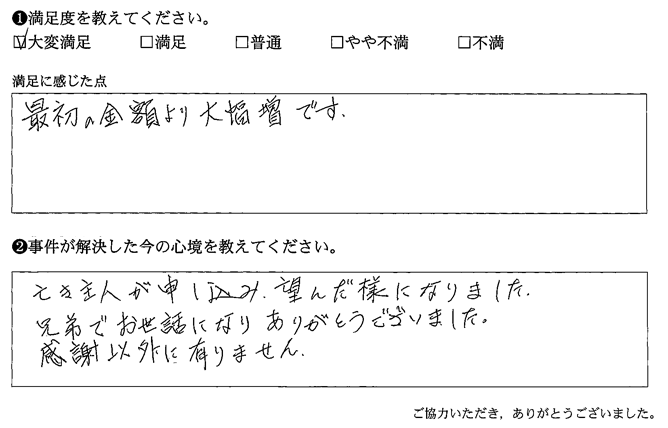 ❶満足度を教えてください。
☑大変満足 □満足 □普通 □やや不満 □不満
満足に感じた点
最初の金額より大幅増です.
❷事件が解決した今の心境を教えてください。
主人が申し込み.望んだ様になりました.
兄弟でお世話になりありがとうございました。
感謝以外に有りません.
ご協力いただき，ありがとうございました。